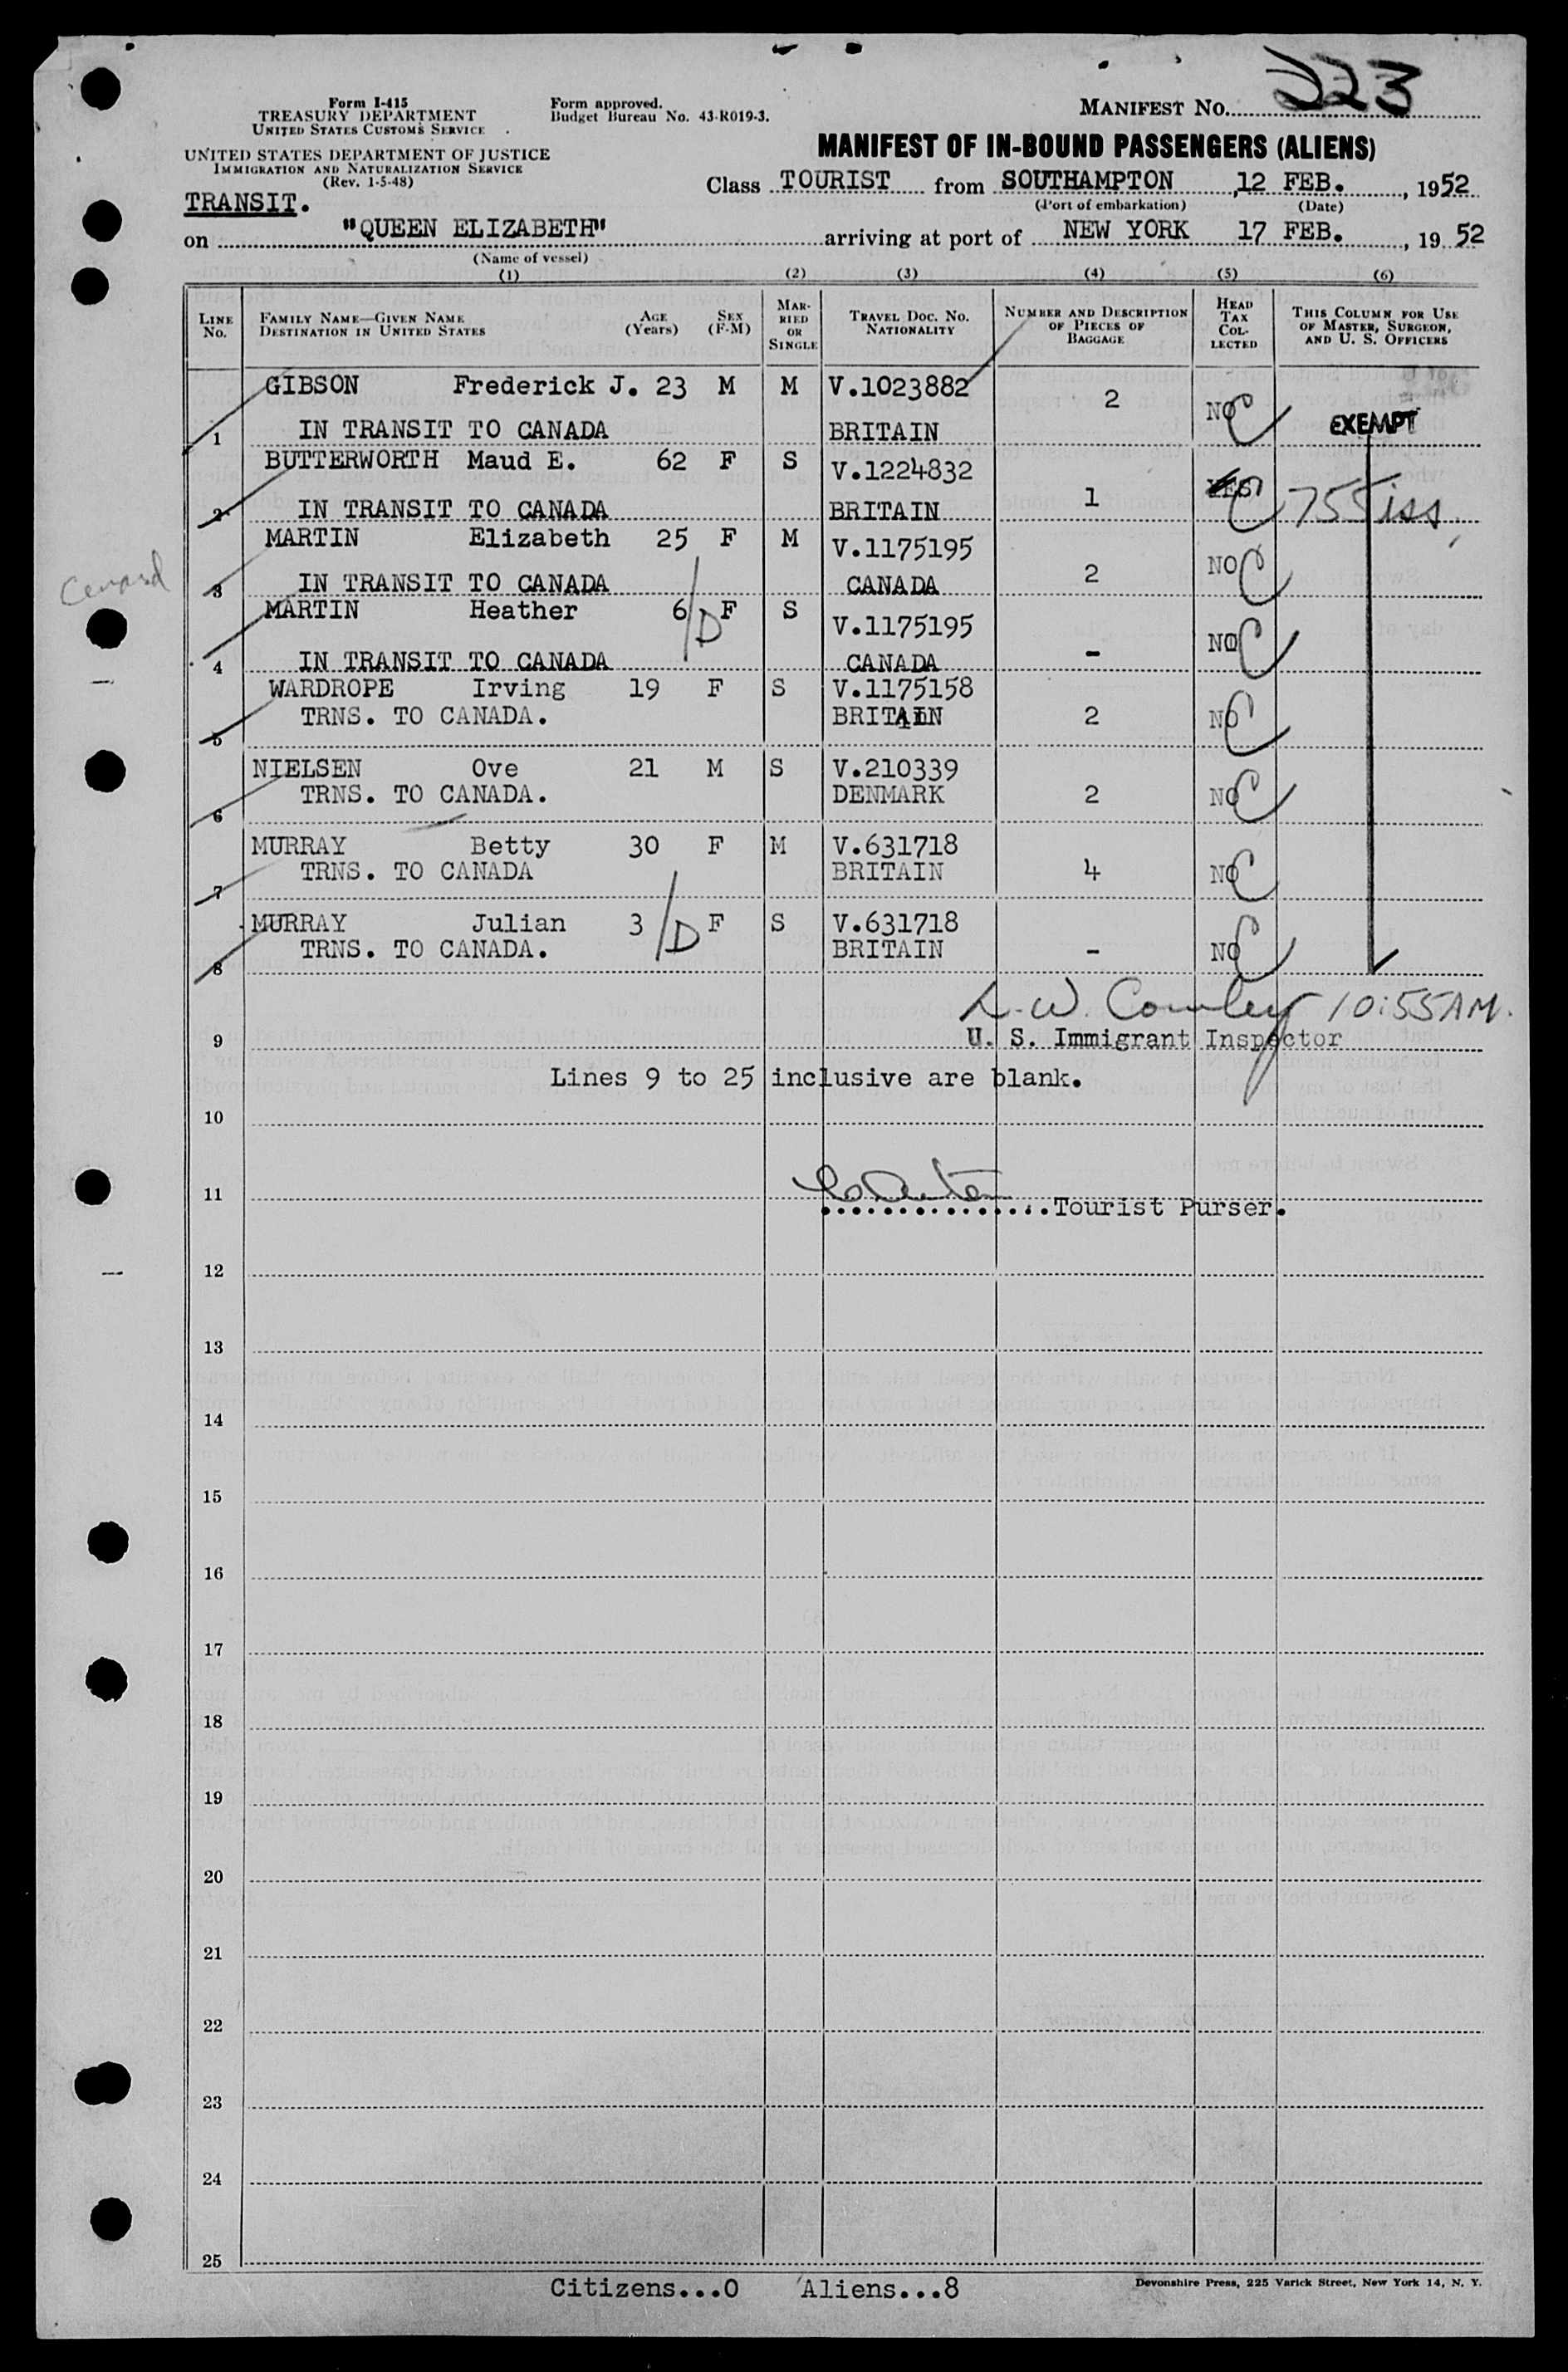 MANIFEST NO. 223
Form I-415
TREASURY DEPARTMENT
UNITED STATES CUSTOMS SERVICE
Form approved.
Budget Bureau No. 43-R019-3.
MANIFEST OF IN-BOUND PASSENGERS (ALIENS)
UNITED STATES DEPARTMENT OF JUSTICE
IMMIGRATION AND NATURALIZATION SERVICE
(Rev. 1-5-48)
Class TOURIST from SOUTHAMPTON, 12 FEB., 1952
(Port of embarkation) (Date)
TRANSIT.
on "QUEEN ELIZABETH" arriving at port of NEW YORK 17 FEB., 1952
(Name of vessel)
(1) (2) (3) (4) (5) (6)
LINE No. FAMILY NAME—GIVEN NAME DESTINATION IN UNITED STATES AGE (Years) SEX (F-M) MARRIED OR SINGLE TRAVEL DOC. NO. NATIONALITY NUMBER AND DESCRIPTION OF PIECES OF BAGGAGE HEAD TAX COLLECTED THIS COLUMN FOR USE OF MASTER, SURGEON, AND U. S. OFFICERS
GIBSON Frederick J. 23 M M V.1023882 2 NO C EXEMPT
1 IN TRANSIT TO CANADA BRITAIN
BUTTERWORTH Maud E. 62 F S V.1224832 1 YES C 755 iss
2 IN TRANSIT TO CANADA BRITAIN
MARTIN Elizabeth 25 F M V.1175195 2 NO C
3 IN TRANSIT TO CANADA CANADA
MARTIN Heather 6 /D F S V.1175195 - NO C
4 IN TRANSIT TO CANADA CANADA
WARDROPE Irving 19 F S V.1175158
5 TRNS. TO CANADA. BRITAIN 2 NO C
NIELSEN Ove 21 M S V.210339
6 TRNS. TO CANADA. DENMARK 2 NO C
MURRAY Betty 30 F M V.631718
7 TRNS. TO CANADA BRITAIN 4 NO C
MURRAY Julian 3 /D F S V.631718
8 TRNS. TO CANADA. BRITAIN - NO C
10:55 AM.
9 U. S. Immigrant Inspector
Lines 9 to 25 inclusive are blank.
10
11
Tourist Purser.
12
13
14
15
16
17
18
19
20
21
22
23
24
25
Citizens...0 Aliens...8
Devonshire Press, 225 Varick Street, New York 14, N. Y.